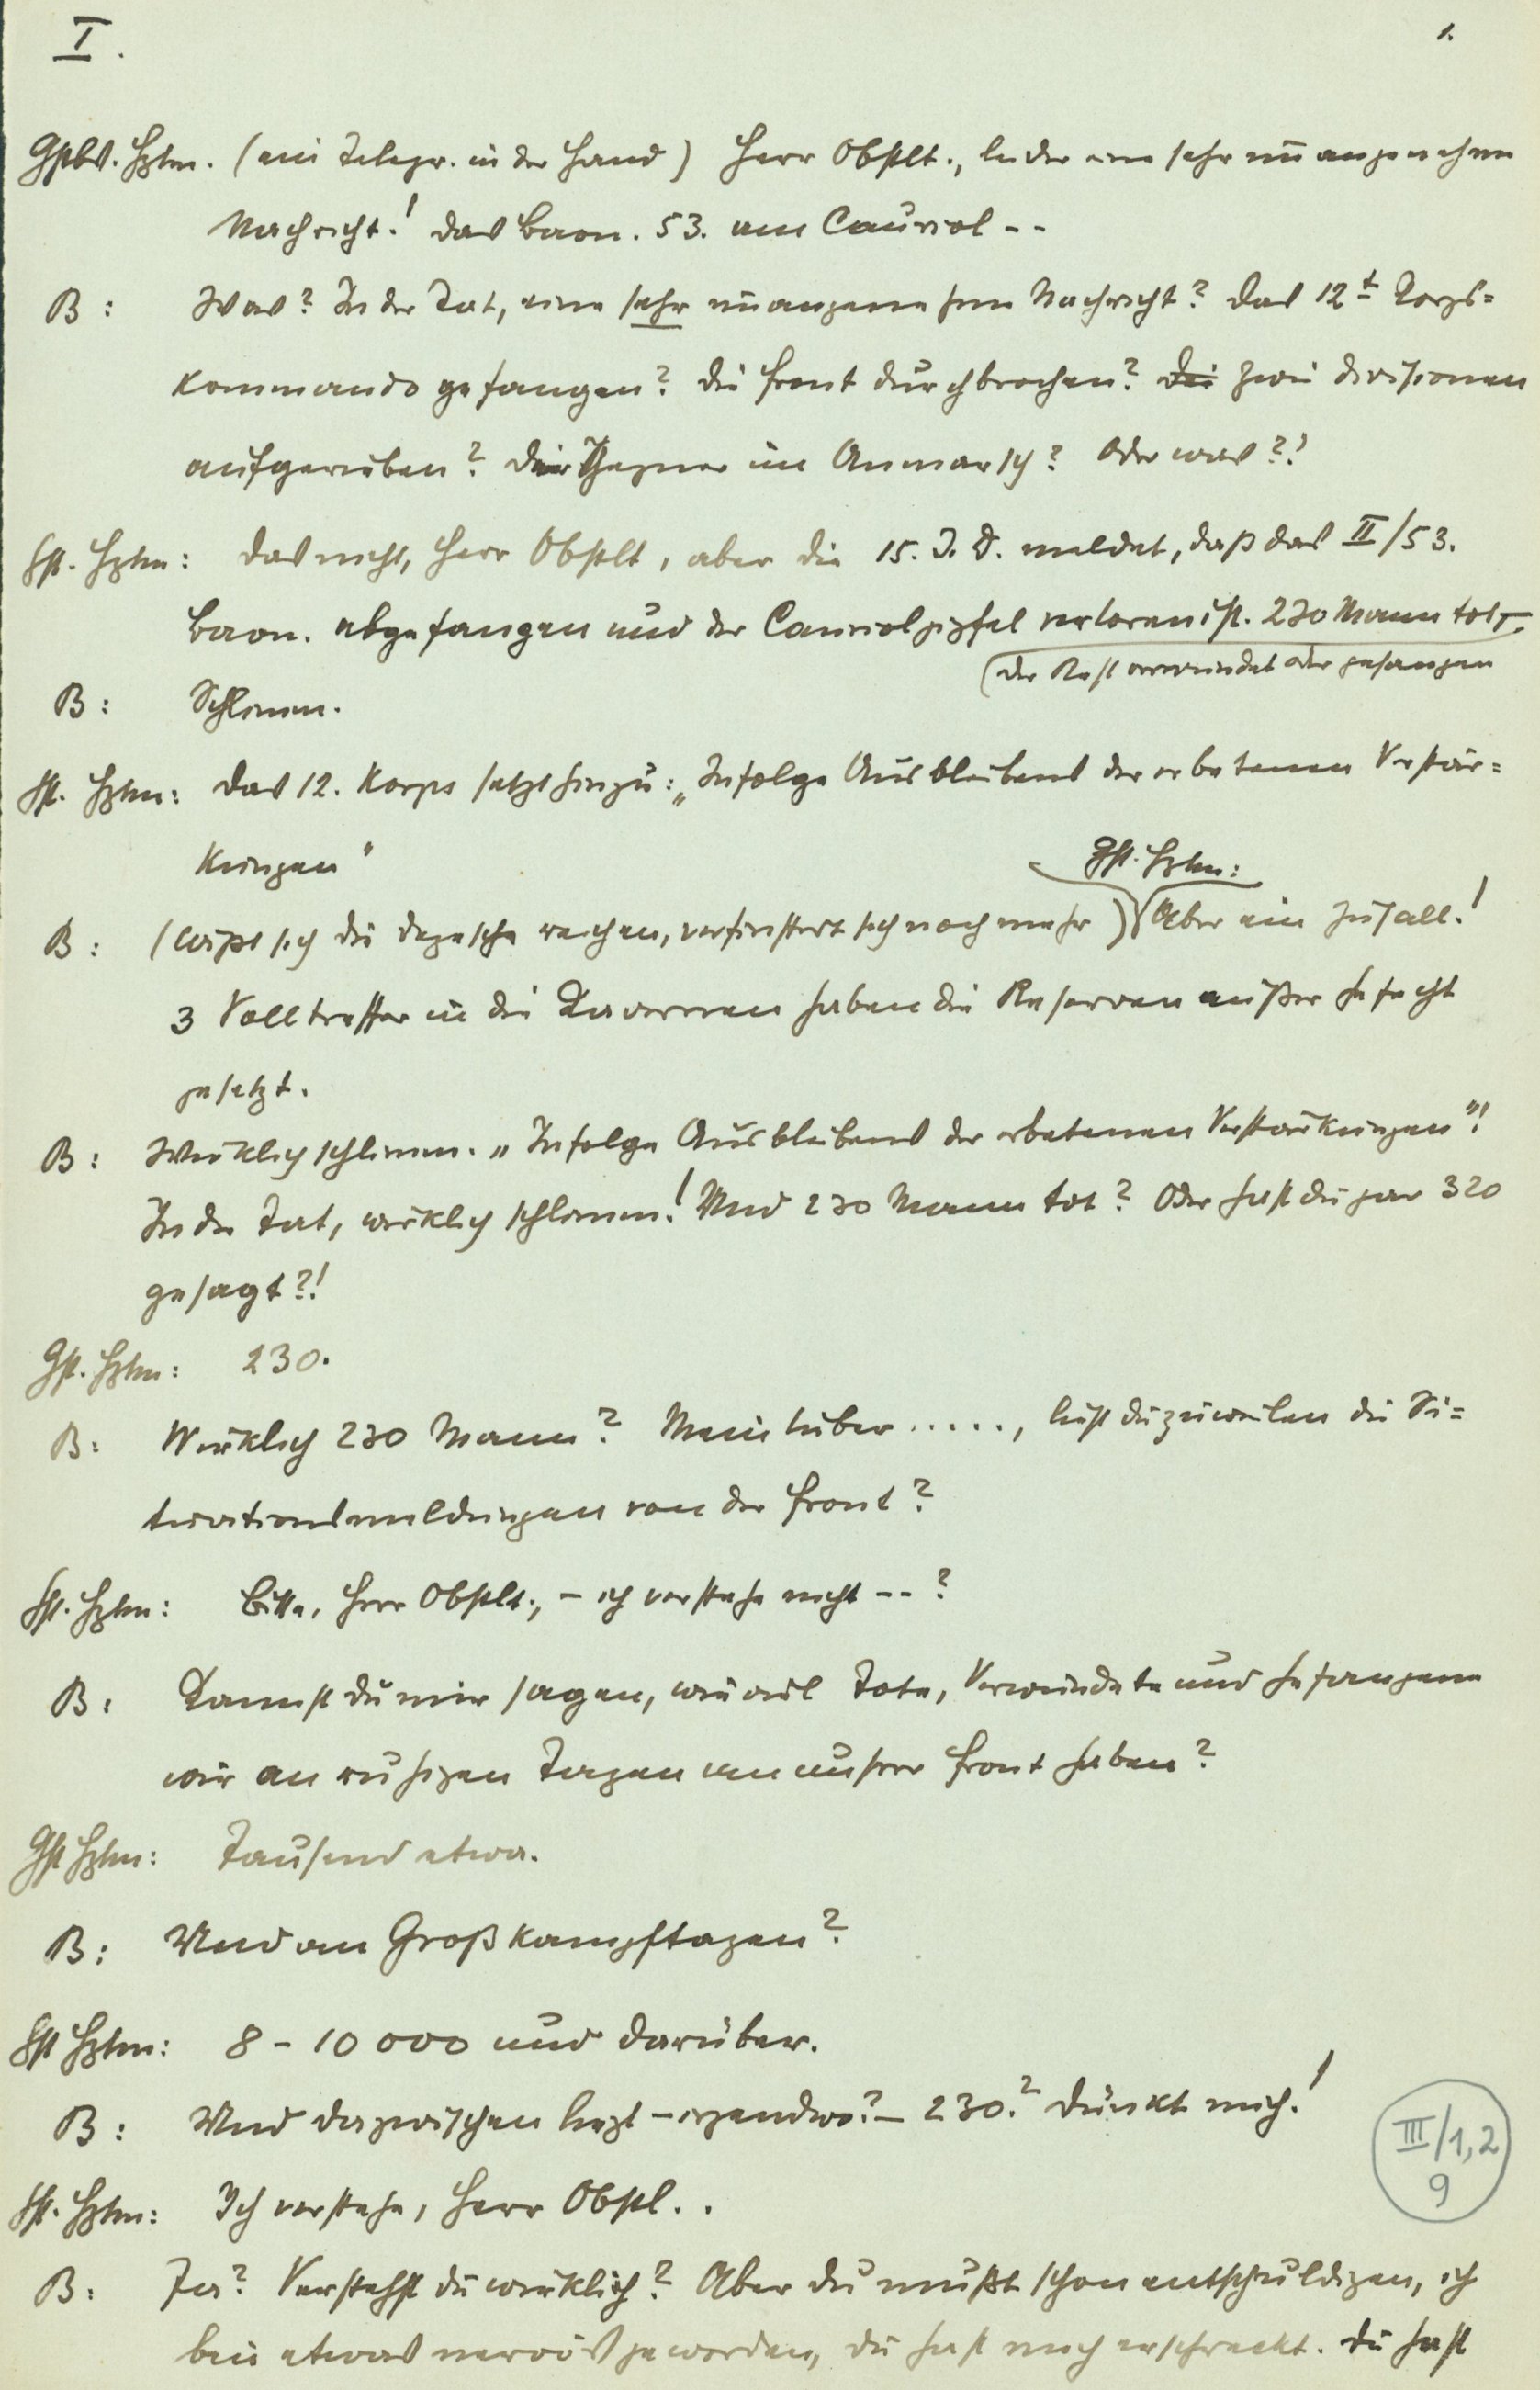 I.
1.
Gstbs. Hptm. (ein Telegr. in der Hand) Herr Obstlt., leider eine sehr unangenehme
Nachricht! Das Baon. 53. am Cauriol --
B: Was? In der Tat, eine sehr unangenehme Nachricht? Das 12t Korps=
kommando gefangen? Die Front durchbrochen? Die Zwei Divisionen
aufgerieben? Der Gegner im Anmarsch? Oder was?!
Gst. Hptm: Das nicht, Herr Obstlt, aber die 15. I. D. meldet, daß das II/53.
Baon. abgefangen und der Cauriolgipfel verloren ist. 230 Mann tot,
der Rest verwundet oder gefangen
B: Schlimm.
Gst. Hptm: Das 12. Korps setzt hinzu: „Infolge Ausbleibens der erbetenen Verstär=
kungen"
Gst. Hptm:
B: (läßt sich die Depesche reichen, verfinstert sich noch mehr) Aber ein Zufall!
3 Volltreffer in die Kavernen haben die Reserven außer Gefecht
gesetzt.
B: Wirklich schlimm. „Infolge Ausbleibens der erbetenen Verstärkungen"!
In der Tat, wirklich schlimm! Und 230 Mann tot? Oder hast du gar 320
gesagt?!
Gst. Hptm: 230.
B: Wirklich 230 Mann? Mein lieber ....., liest du zuweilen die Si=
tuationsmeldungen von der Front?
Gst. Hptm: Bitte, Herr Obstlt., – ich verstehe nicht -- ?
B: Kannst du mir sagen, wie viel Tote, Verwundete und Gefangene
wir an ruhigen Tagen an unsrer Front haben?
Gst Hptm: Tausend etwa.
B: Und an Großkampftagen?
Gst Hptm: 8 – 10 000 und darüber.
B: Und dazwischen liegt – irgendwo? – 230? dünkt mich!
Gst. Hptm: Ich verstehe, Herr Obstl..
B: Ja? Verstehst du wirklich? Aber du mußt schon entschuldigen, ich
bin etwas nervös geworden, du hast mich erschreckt. Du hast
III/1,2
9